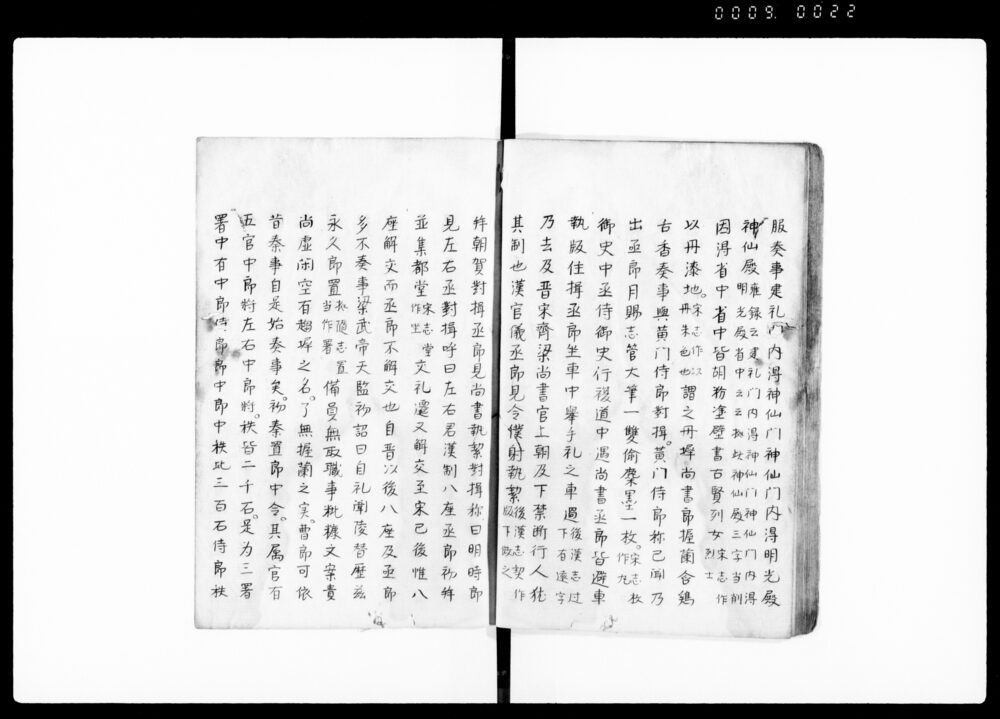 0009. 0022
服奏事建礼门内得神仙门神仙门内得明光殿
神仙殿雍录云建礼门内得神仙门神仙门内得明光殿省中云云拠此神仙殿三字当削
因得省中省中皆胡粉塗壁書古賢列女宋志作烈士
以丹漆地。宋志作以丹朱也也謂之丹墀尚書郎握蘭含鷄
舌香奏事與黄门侍郎對揖。黄门侍郎称己闻乃
出丞郎月賜志管大筆一雙偷麋墨一枚。宋志枚作丸
御史中丞侍御史行復道中遇尚書丞郎皆避車
執版住揖丞郎坐車中舉手礼之車過後漢志过下有遠字
乃去及晋宋齊梁尚書官上朝及下禁断行人犹
其制也漢官儀丞郎見令僕射執絜後漢志契作版下敗之
拜朝賀對揖丞郎見尚書執絜對揖称曰明時郎
見左右丞對揖呼曰左右君漢制八座丞郎初拜
並集都堂宋志堂作坐交礼遷又解交至宋己後惟八
座解交而丞郎不解交也自晋以後八座及丞郎
多不奏事梁武帝天監初詔曰自礼闱陵替歴兹
永久郎置拠隨志置当作署備員無取職事粃糠文案責
尚虚闲空有趨墀之名。了無握蘭之实。曹郎可依
昔秦事自是始奏事矣。初秦置郎中令。其属官有
五官中郎将左右中郎将。秩皆二千石。是为三署
署中有中郎侍郎郎中郎中秩比三百石侍郎秩